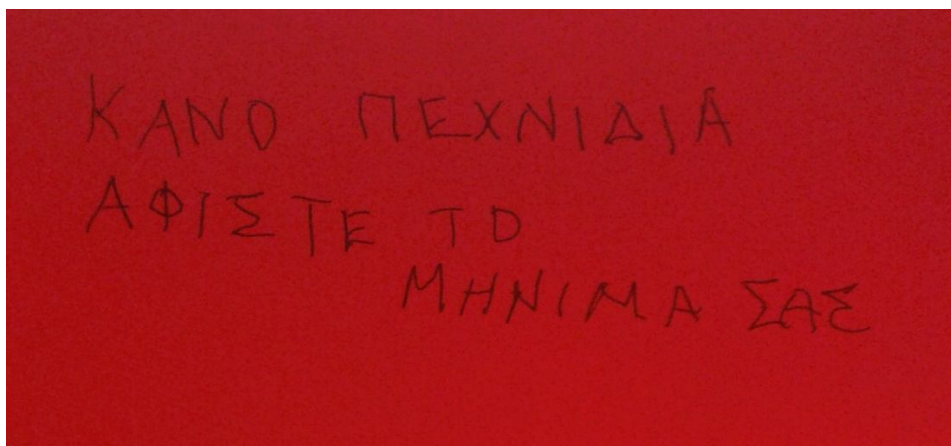 ΚΑΝΟ ΠΕΧΝΙΔΙΑ
ΑΦΙΣΤΕ ΤΟ
ΜΗΝΙΜΑ ΣΑΣ